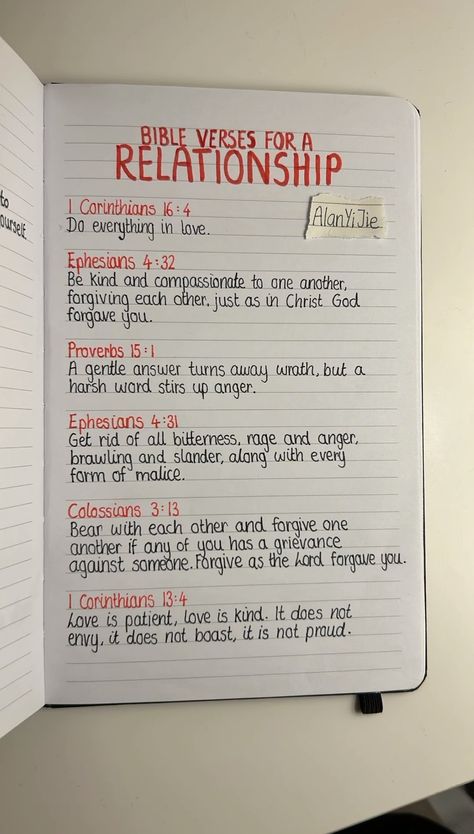 to
ourself.
BIBLE VERSES FOR A
RELATIONSHIP
1 Corinthians 16:4
AlanYiJie
Do everything in love.
Ephesians 4:32
Be kind and compassionate to one another,
forgiving each other, just as in Christ God
forgave you.
Proverbs 15:1
A gentle answer turns away wrath, but a
harsh word stirs up anger.
Ephesians 4:31
Get rid of all bitterness, rage and anger,
brawling and slander, along with every
form of malice.
Colossians 3:13
Bear with each other and forgive one
another if any of you has a grievance
against someone. Forgive as the Lord forgave you.
1 Corinthians 13:4
Love is patient, love is kind. It does not
envy, it does not boast, it is not proud.